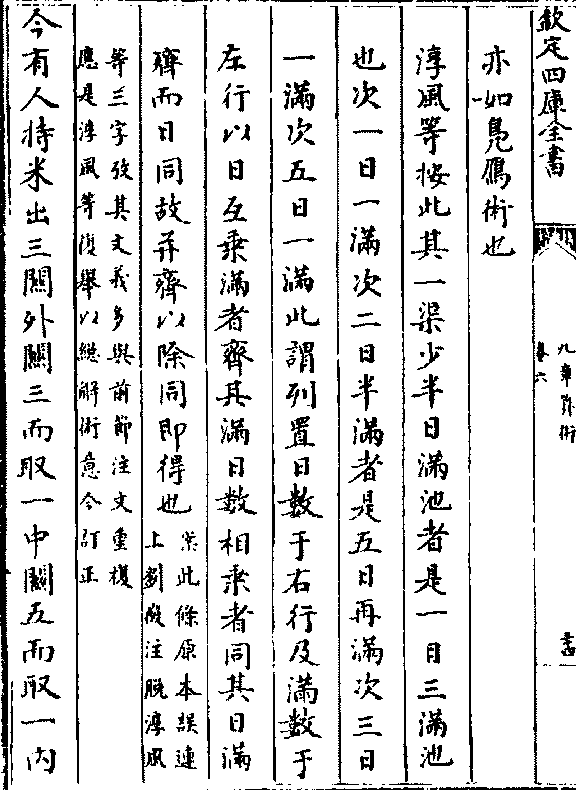 欽定四庫全書
九章筭術
卷六
亦如鳬鴈術也
淳風等按此其一渠少半日滿池者是一日三滿池
也次一日一滿次二日半滿者是五日再滿次三日
一滿次五日一滿此謂列置日數于右行及滿數于
左行以日互乗滿者齊其滿日數相乗者同其日滿
齊而日同故并齊以除同即得也
案此條原本誤連
上劉徽注脱淳風
等三字攷其文義多與前節注文重複
應是淳風等復舉以總解術意今訂正
今有人持米出三關外關三而取一中關五而取一内